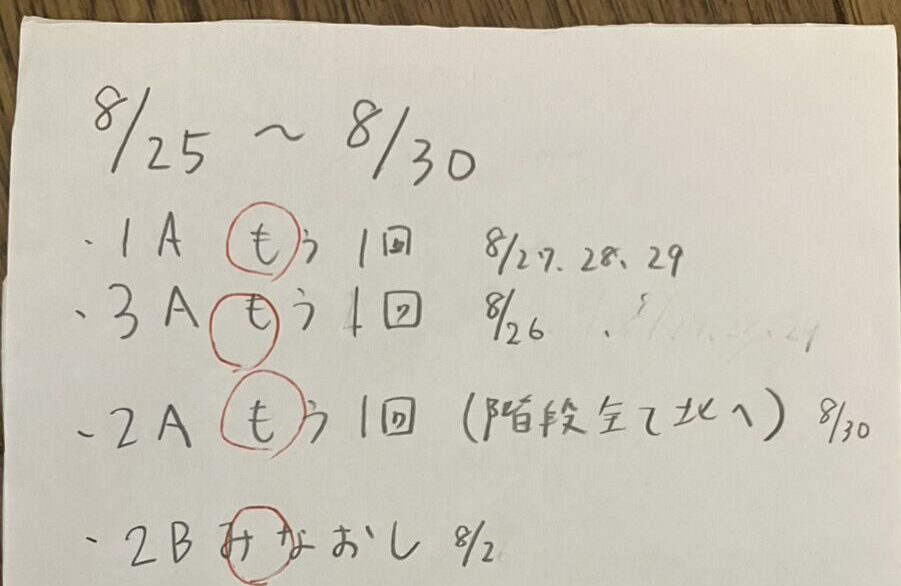 8/25 ~ 8/30
・1A もう1回 8/27、28、29
・3A もう1回 8/26 、
・2A もう1回 (階段全て北へ) 8/30
・2B みなおし 8/2